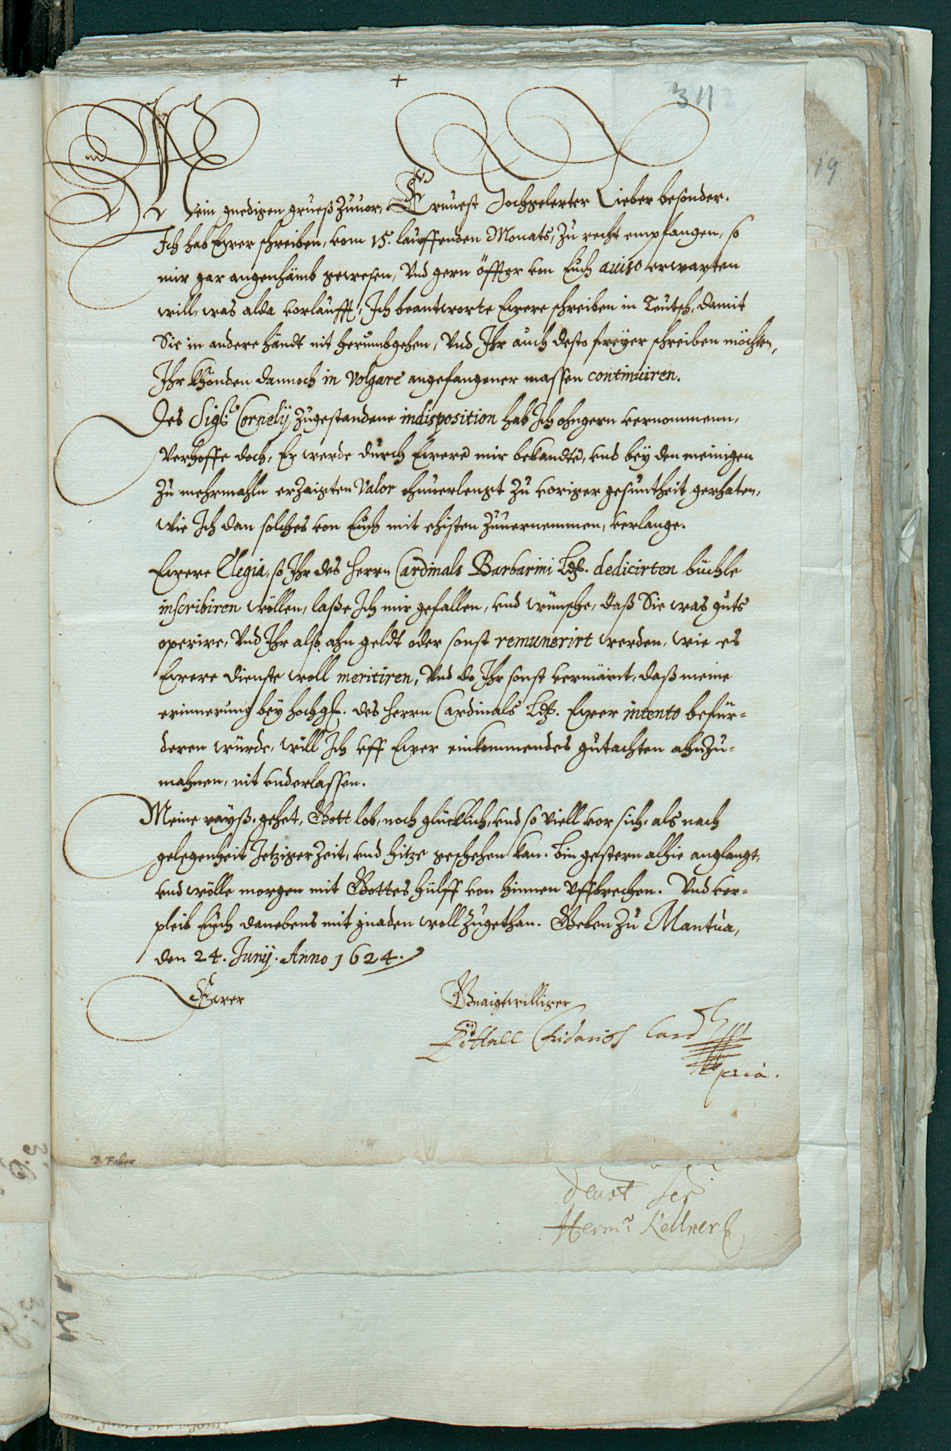 +
311
19
Mein gnedigen grueß zuuor, Ernuest Hochgelerter Lieber besonder.
Ich hab Ewer schreiben, vom 15. lauffenden Monats, zu recht empfangen, so
mir gar angenhämb gewesen, Vnd gern öffter von Euch auiso erwarten
will, was alda vorlaufft, Ich beantworte Ewere schreiben in Teutsch, damit
Sie in andere händt nit herumbgehen, Vnd Ihr auch desto freyer schreiben möchten,
Ihr khönden dannoch in Volgare angefangener massen continuiren.
Des Sigr. Cornelij, zugestandene indisposition hab Ich ohngern vernommenn,
Verhoffe doch, Er werde durch Ewere mir bekandte, vnd bey den meinigen
zu mehrmahln erzaigten Valor ohnuerlengt zu voriger gesuntheit gerhaten,
wie Ich dan solches von Euch mit ehisten zuuernemmen, verlange.
Ewere Elegia, so Ihr des Herrn Cardinals Barbarini Ld. dedicirten büchle
inscribiren wöllen, laße Ich mir gefallen, vnd wünsche, daß Sie was guts
operire, Vnd Ihr also, ahn geldt oder sonst remunerirt werden, wie es
Ewere dienste woll meritiren, Vnd do Ihr sonst vermäint, daß meine
erinnerung bey hochg. des Herrn Cardinals Ld. Ewer intento befür-
deren würde, will Ich vff Ewer einkommendes gutachten ahnzu-
mahnen, nit vnderlassen.
Meine rayß, gehet, Gott lob, noch glücklich, vnd so viell vor sich, als nach
gelegenheit Jetziger Zeit, vnd hitze geschehen kan. Bin gestern alhie anglangt,
vnd wölle morgen mit Gottes hülff von hinnen vffbrechen. Vnd ver-
pleib Euch danebens mit gnaden woll zugethan. Geben zu Mantua,
den 24. Junij. Anno 1624.
Ewer
Gnaigtwilliger
Eittell Friderich Card
D. Faber
deuot Ser
Herm. Kellner